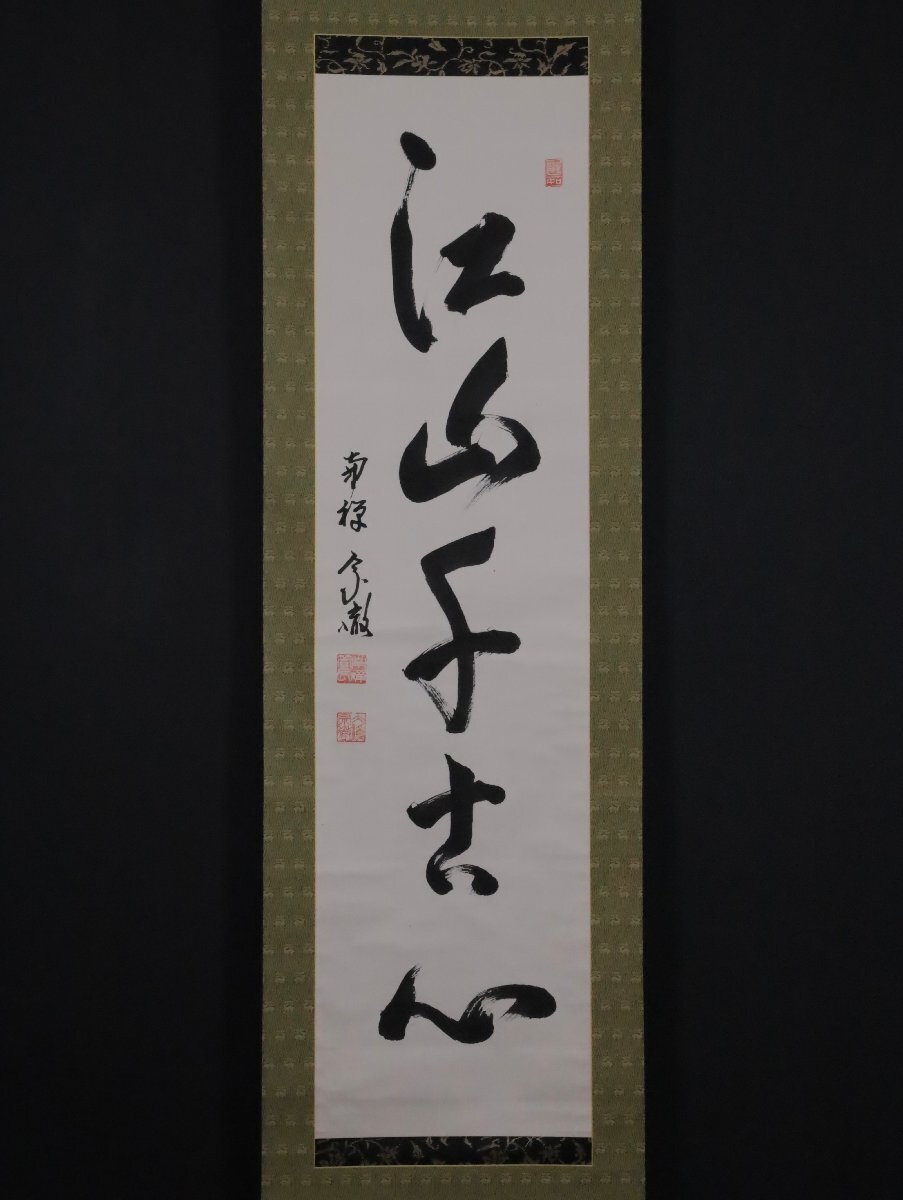 江山千古心
南禅宗徹